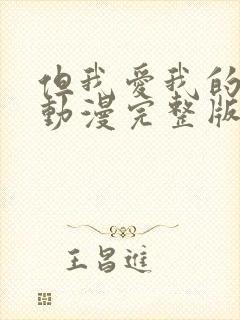 但我愛我的
動漫完整版
王昌進